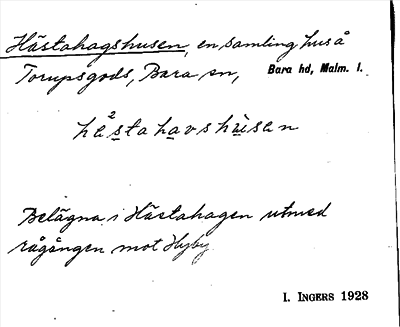 Hästahagshusen, en samling hus å
Torupsgods, Bara sn, Bara hd, Malm. l.
hästahavshùsen
Belägna i Hästahagen utmed
rågången mot Hyby
I. INGERS 1928